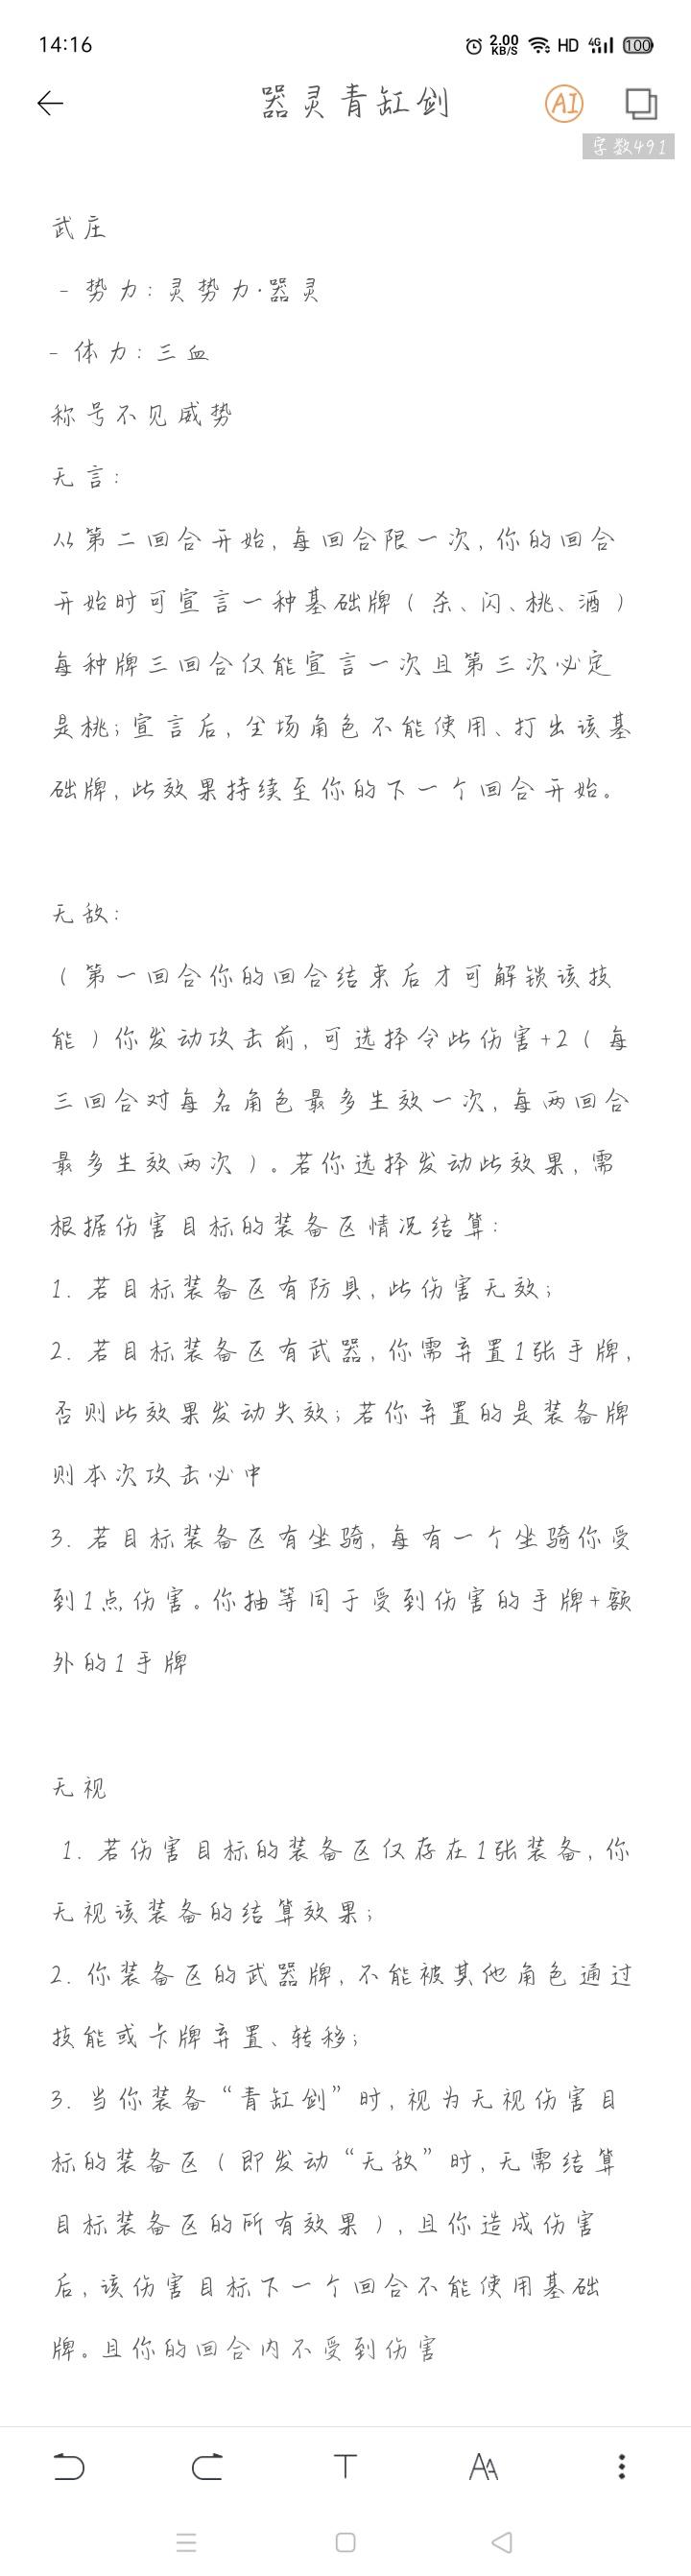 14:16
2.00 KB/S HD 4G 100
器灵青缸剑
AI
字数491
武庄
- 势力：灵势力·器灵
- 体力：三血
称号不见威势
无言：
从第二回合开始，每回合限一次，你的回合
开始时可宣言一种基础牌（杀、闪、桃、酒）
每种牌三回合仅能宣言一次且第三次必定
是桃；宣言后，全场角色不能使用、打出该基
础牌，此效果持续至你的下一个回合开始。
无敌：
（第一回合你的回合结束后才可解锁该技
能）你发动攻击前，可选择令此伤害+2（每
三回合对每名角色最多生效一次，每两回合
最多生效两次）。若你选择发动此效果，需
根据伤害目标的装备区情况结算：
1. 若目标装备区有防具，此伤害无效；
2. 若目标装备区有武器，你需弃置1张手牌，
否则此效果发动失效；若你弃置的是装备牌
则本次攻击必中
3. 若目标装备区有坐骑，每有一个坐骑你受
到1点伤害。你抽等同于受到伤害的手牌+额
外的1手牌
无视
1. 若伤害目标的装备区仅存在1张装备，你
无视该装备的结算效果；
2. 你装备区的武器牌，不能被其他角色通过
技能或卡牌弃置、转移；
3. 当你装备“青缸剑”时，视为无视伤害目
标的装备区（即发动“无敌”时，无需结算
目标装备区的所有效果），且你造成伤害
后，该伤害目标下一个回合不能使用基础
牌。且你的回合内不受到伤害
T AA